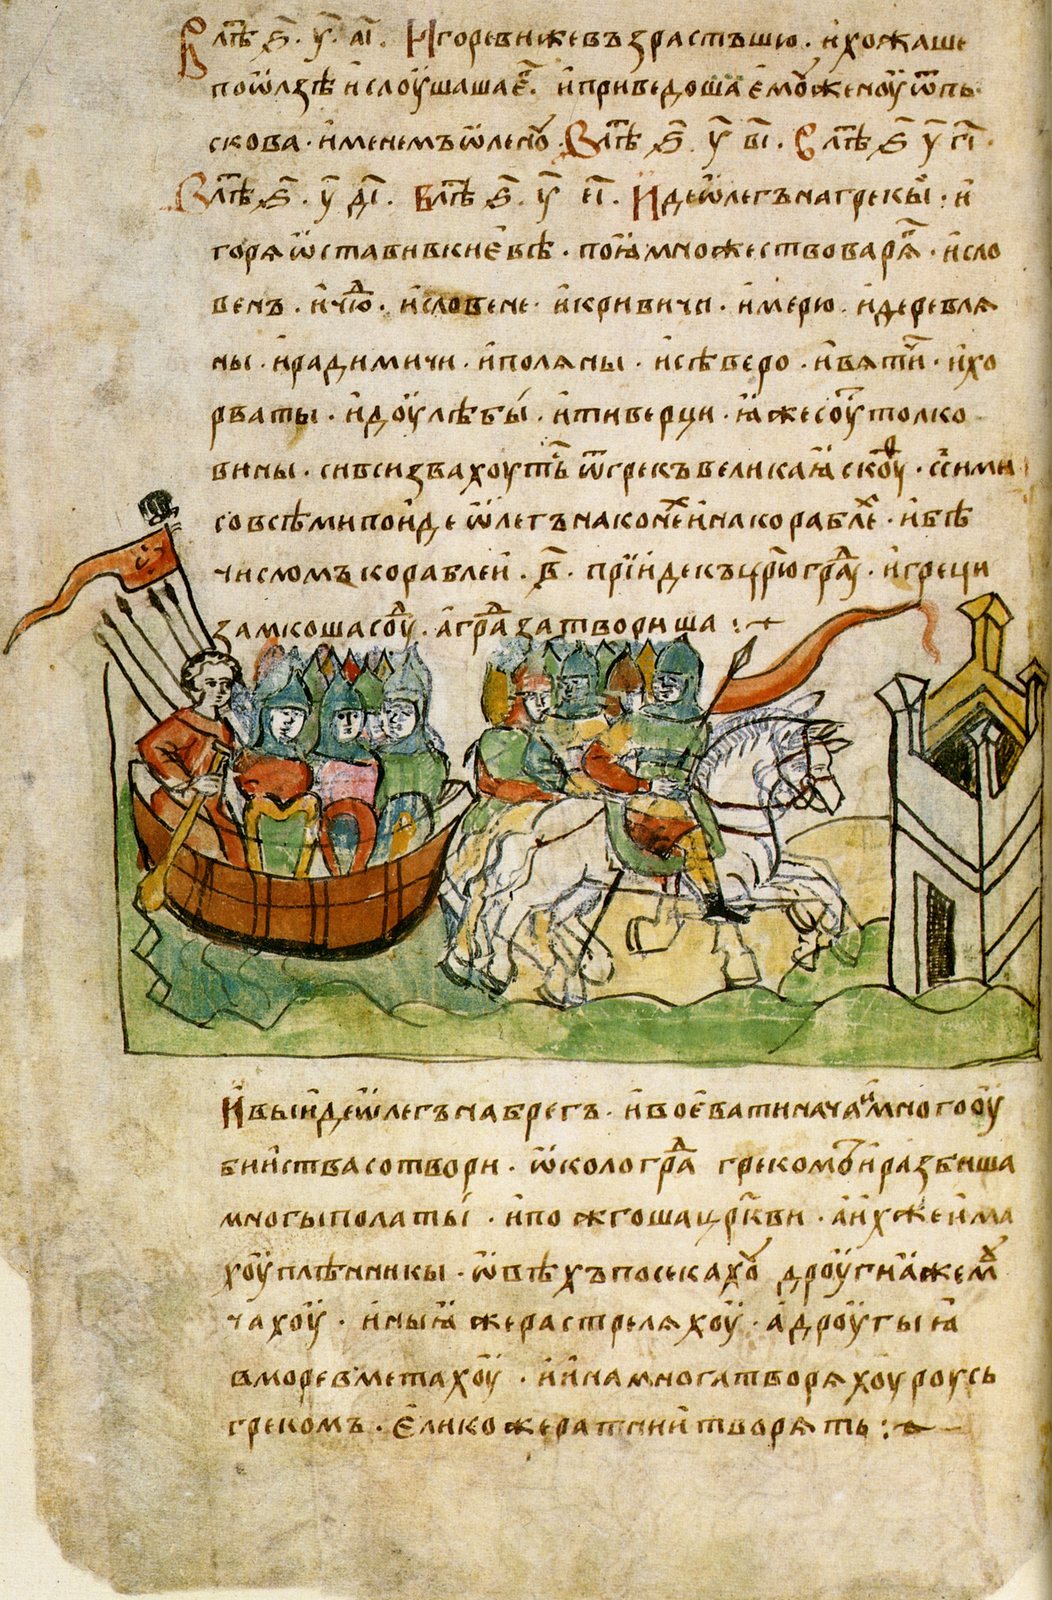 В лѣт҃ ҂ѕ҃ . у҃ . аı҃ . Игореви же възрастъшю . и хожаше
по ѿлзѣ и слоушаша е҃г . и приведоша емоу женоу ѿ пь
скова . именемъ ѡленоу . В лѣт҃ ҂ѕ҃ . у҃ вı҃ . В лѣт҃ ҂ѕ҃ у҃ гı҃ .
В лѣт҃ ҂ѕ҃ . у҃ дı҃ . В лѣт҃ ҂ѕ҃ . у҃ еı҃ . Иде ѡлегъ на грекы . и
горя ѡстави в киевѣ . поꙗ множество варѧ҃г . и сло
венъ . и чю҃д . и словене . и кривичи . и мерю . и деревлѧ
ны . и радимичи . и полѧны . и сѣверо . и вѧтичи . и хо
рваты . и доулѣбы . и тиверци . ꙗже соуть толко
вины . си вси звахоуть ѿ грекъ великаꙗ скоуѳ . с сими
со всѣми поиде ѡлегъ на конех и на кораблех . и бѣ
числомъ кораблеи . в҃ . прїиде къ ц҃рюградоу . и греци
замкоша соуд . а град затвориша :~
И выиде ѡлегъ на брегъ . и воевати нача и много оу
биıства сотвори . ѡколо града грекомъ и разбиша
многы полаты . и пожгоша ц҃ркви . а ихже има
хоу плѣнникы . ѡвѣхъ посекахоу дроугиꙗ же моу
чахоу . иныꙗ же растрелѧхоу . а дроугыꙗ
в море вметахоу . и ина многа творѧхоу роусь
грекомъ . елико же ратнии творѧть :~